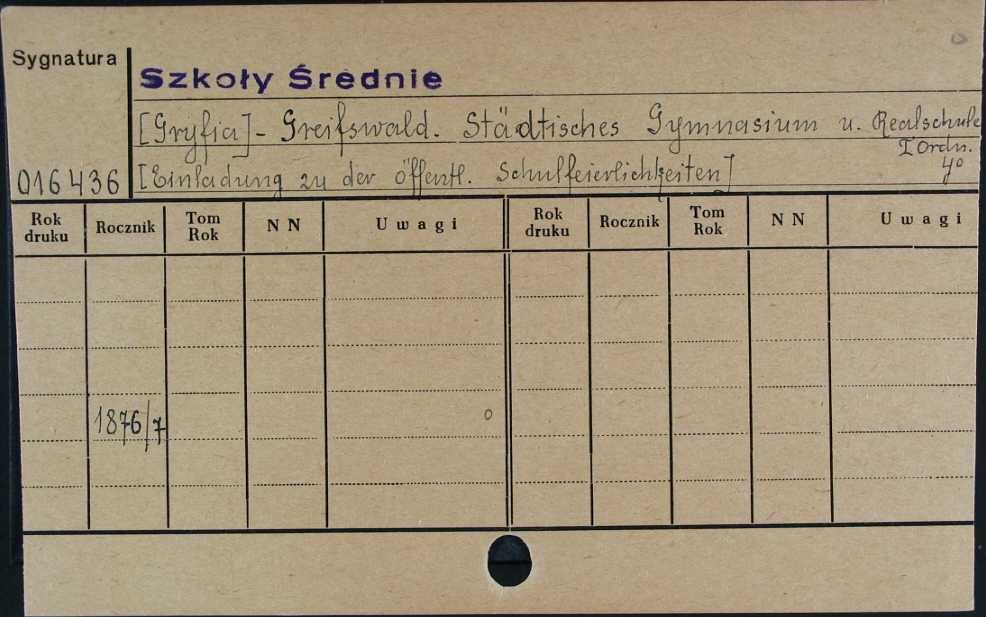 Sygnatura
Szkoły Średnie
[Gryfia] - Greifswald. Städtisches Gymnasium u. Realschule
I Ordn.
016436 [Einladung zu der öffentl. Schulfeierlichkeiten] 4°
Rok druku Rocznik Tom Rok N N Uwagi Rok druku Rocznik Tom Rok N N Uwagi
1876/7 o